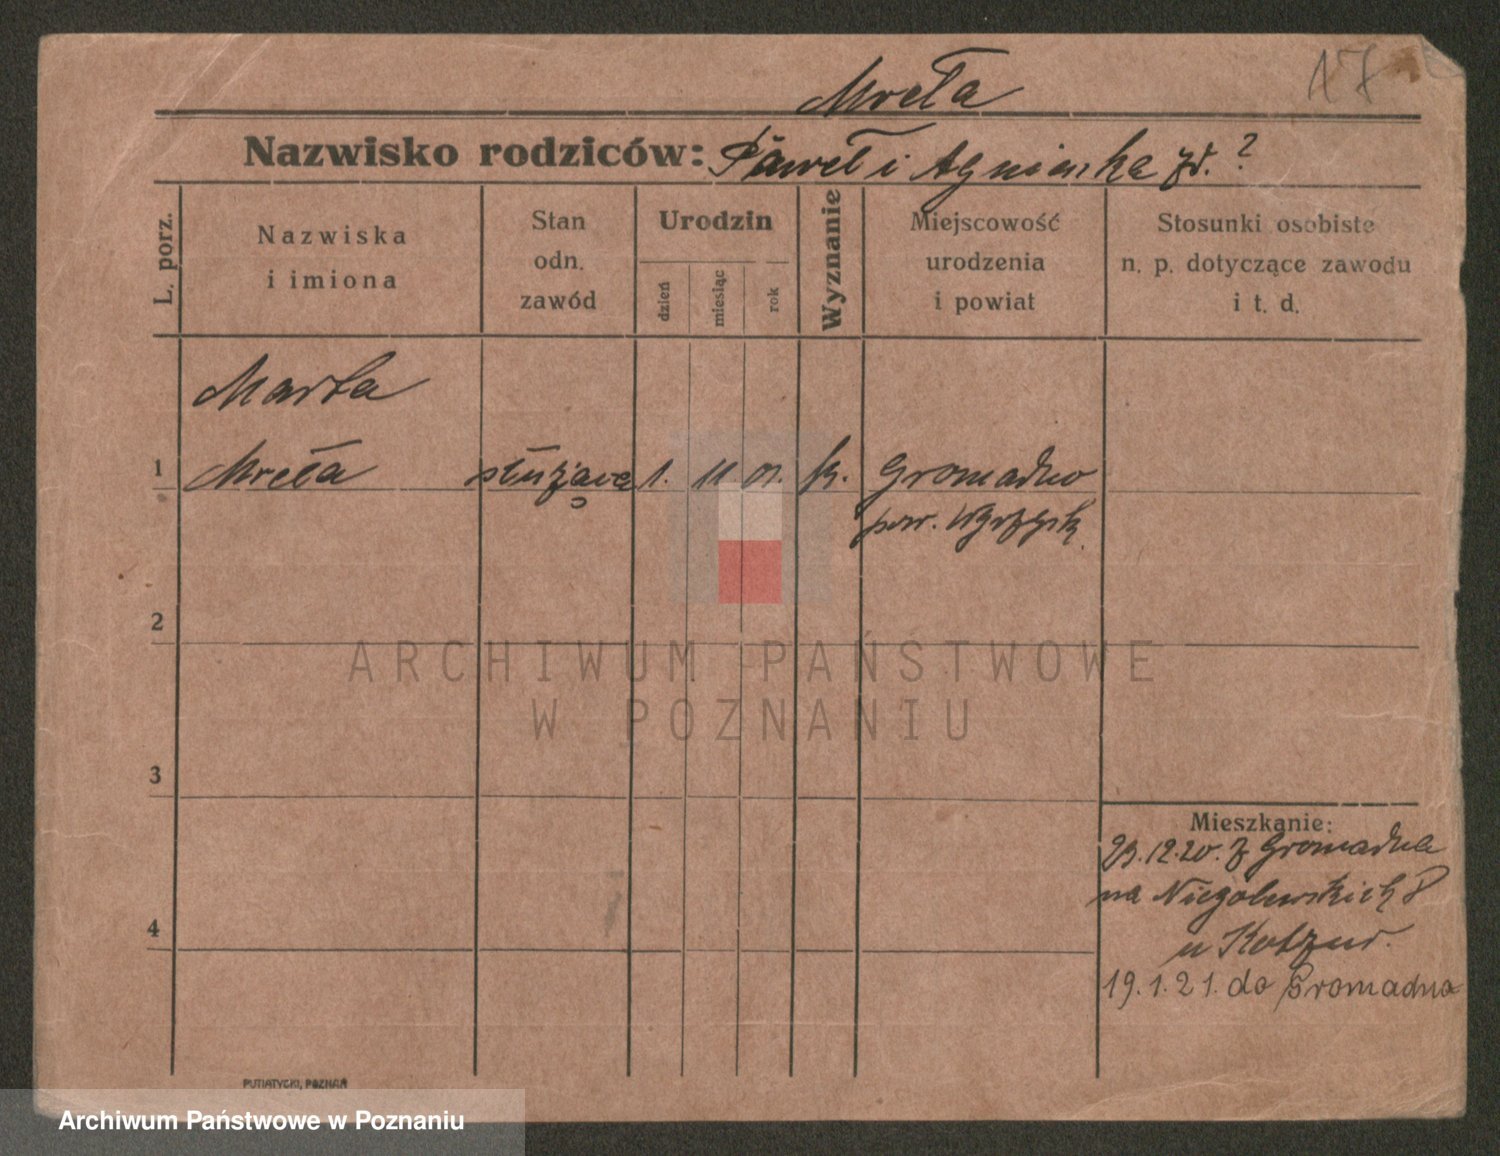 Mreła
178
Nazwisko rodziców: Paweł i Agnieszka zd. ?
L. porz.
Nazwiska
i imiona
Stan
odn.
zawód
Urodzin
dzień
miesiąc
rok
Wyznanie
Miejscowość
urodzenia
i powiat
Stosunki osobiste
n. p. dotyczące zawodu
i t. d.
Marta
1 Mreła służąca 1. 11. 01. k. Gromadno
pow. Wyrzysk
2
3
4
Mieszkanie:
23.12.20. z Gromadna
na Niegolewskich 8
u Kotzur.
19.1.21. do Gromadna
PUTIATYCKI, POZNAŃ
ARCHIWUM PAŃSTWOWE
W POZNANIU
Archiwum Państwowe w Poznaniu